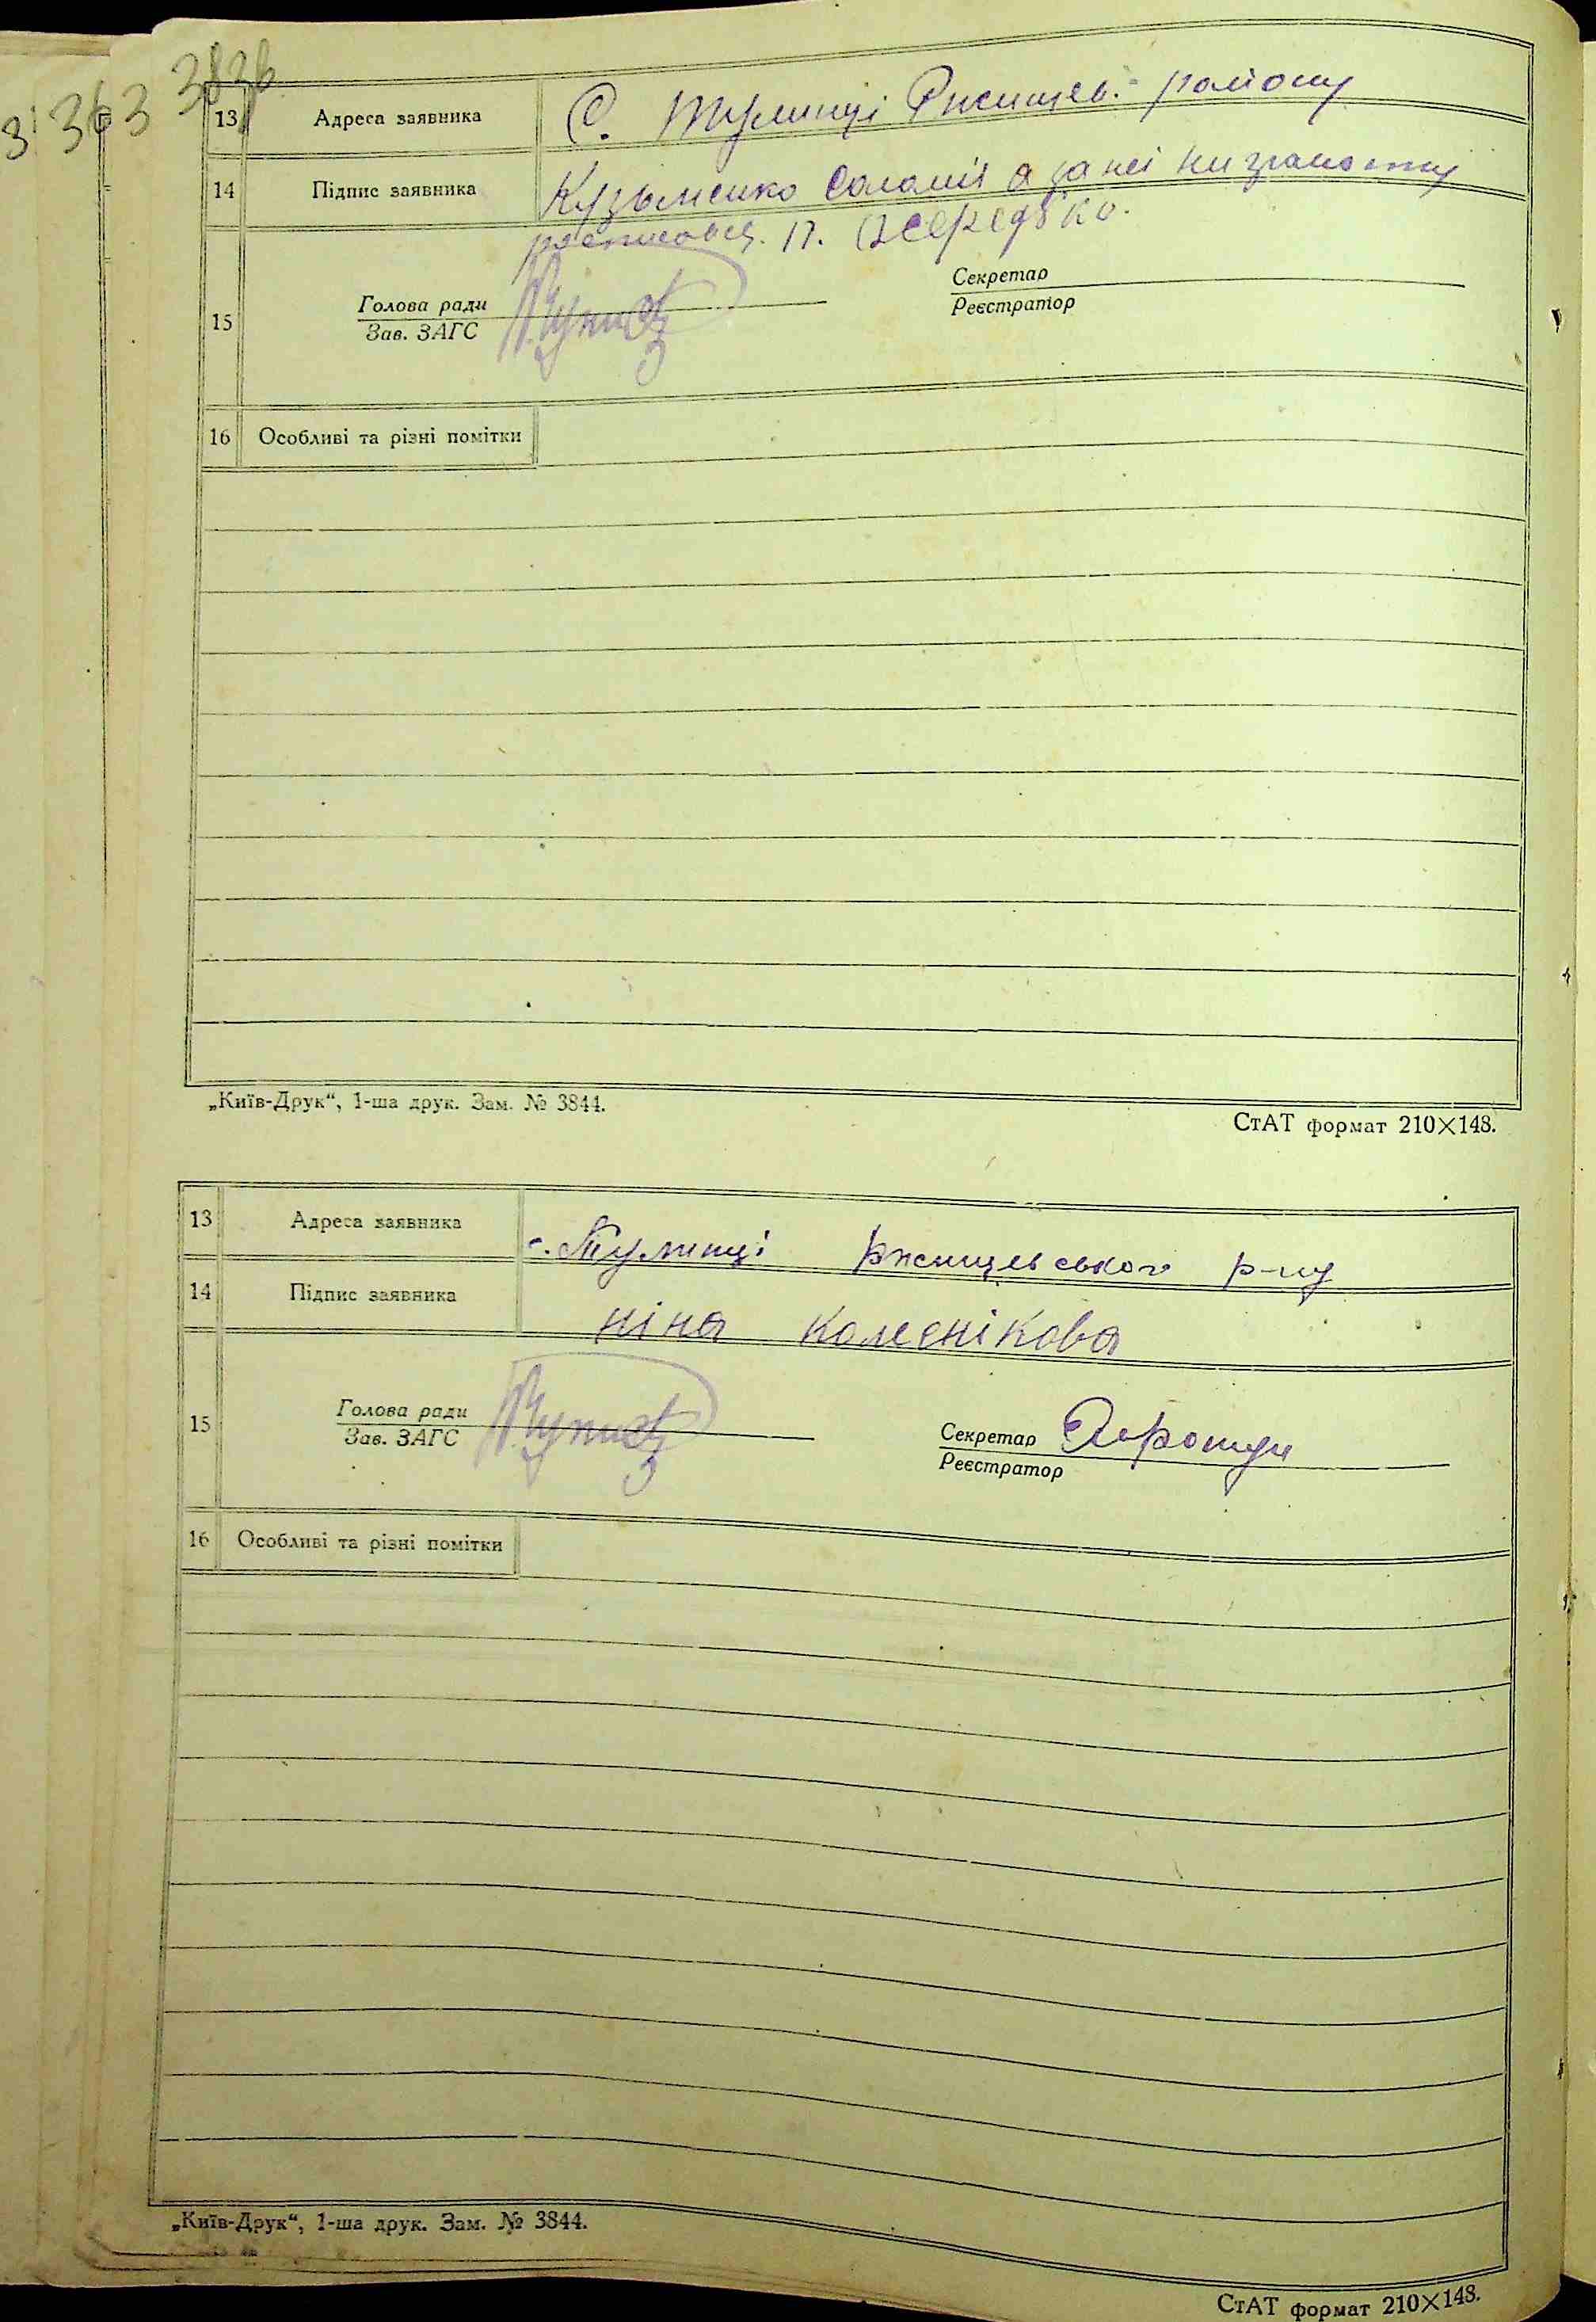 363 383в
13 Адреса заявника С. Тулинці Ржищев. району
14 Підпис заявника Кузьменко Соломія а за неї
росписовся. П. Середько.
15 Голова ради
Зав. ЗАГС
Секретар
Реєстратор
16 Особливі та різні помітки
„Київ-Друк“, 1-ша друк. Зам. № 3844.
СтАТ формат 210×148.
13 Адреса заявника с. Тулинці ржищевського р-ну
14 Підпис заявника ніна колєнікова
15 Голова ради
Зав. ЗАГС
Секретар
Реєстратор
16 Особливі та різні помітки
„Київ-Друк“, 1-ша друк. Зам. № 3844.
СтАТ формат 210×148.